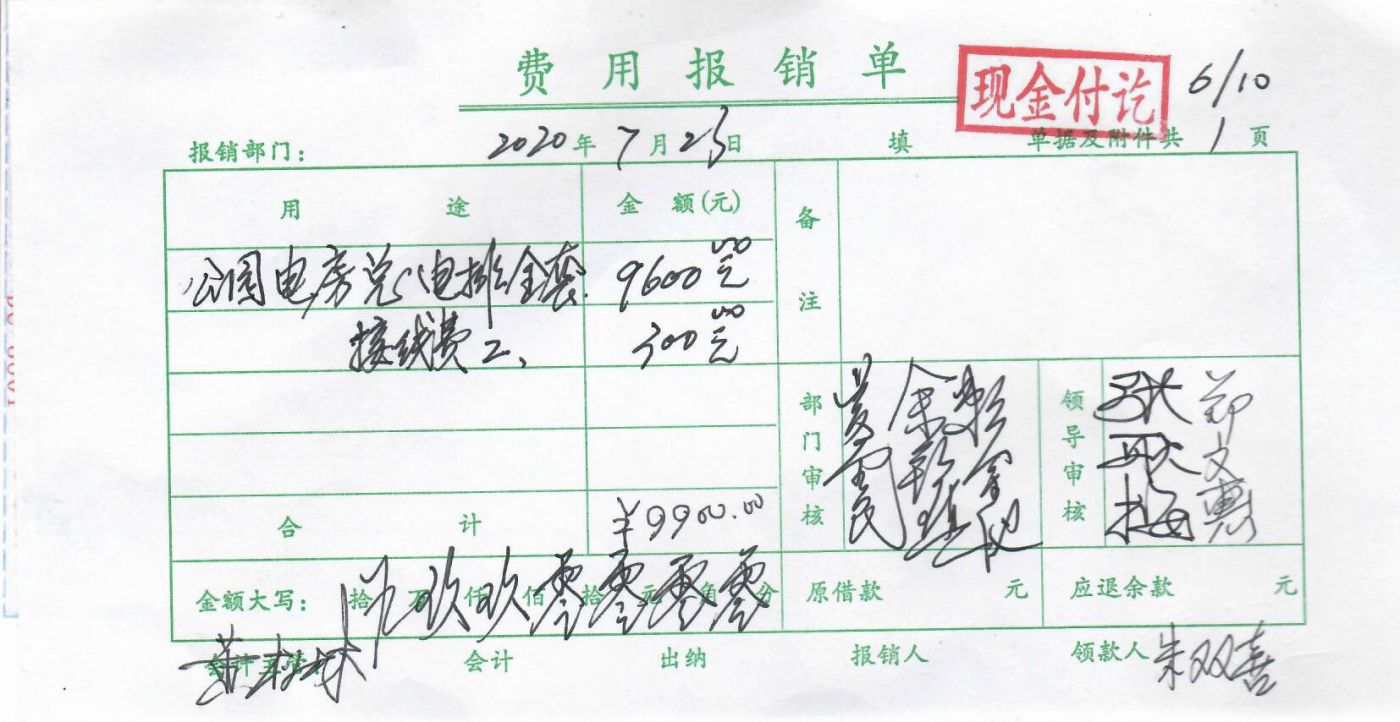 费用报销单
现金付讫
6/10
报销部门： 2020年7月23日 填 单据及附件共1页
用途 金额(元) 备注
公园电房 电排全套 9600.00元
接线费工 300.00元
部门审核 领导审核
张耿梅 郑文惠
合计 ¥9900.00
金额大写： 拾万玖仟玖佰零拾零元零角零分 原借款 元 应退余款 元
会计主管 会计 出纳 报销人 领款人 朱双喜